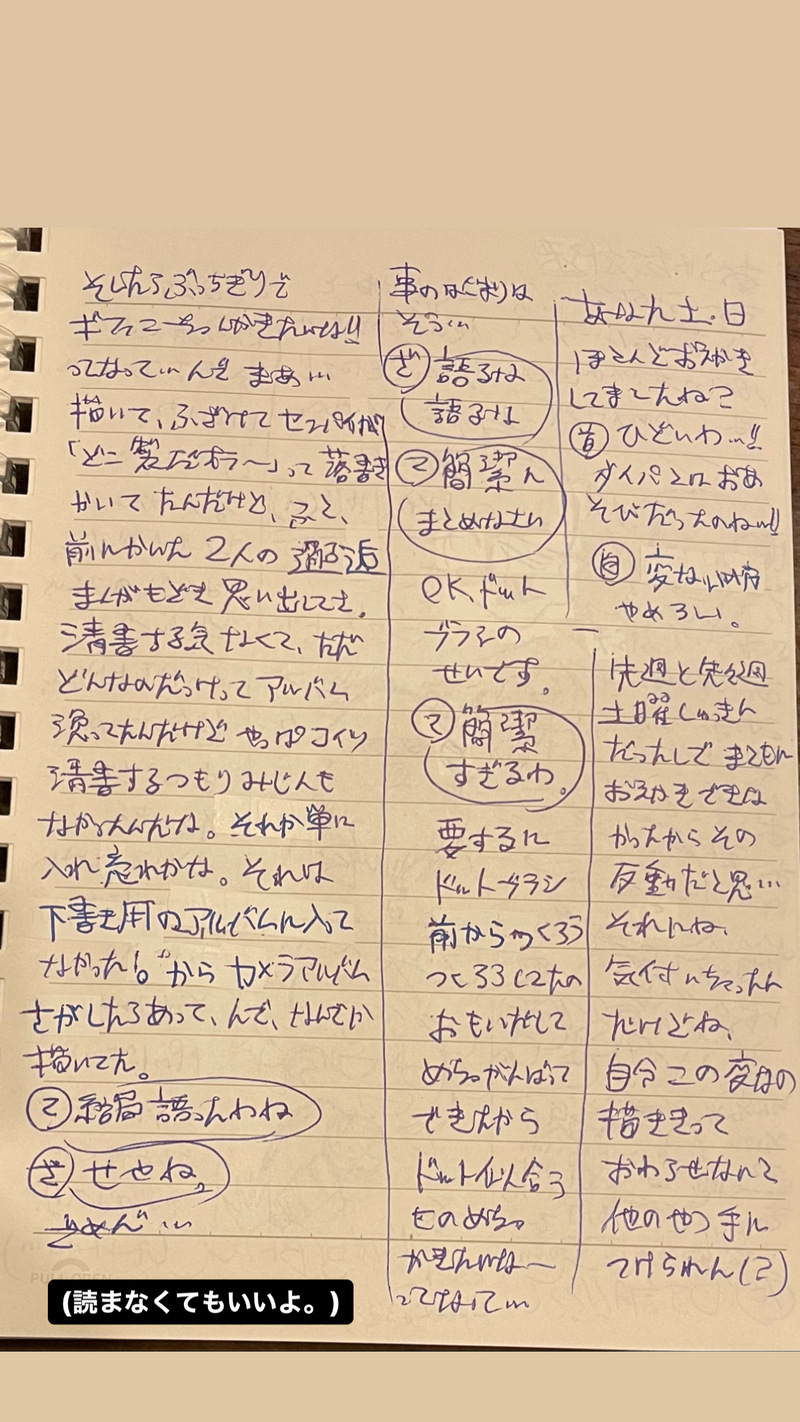 あなた土・日
ほとんどおえかき
してましたね？
首 ひどいわ…!!
ダイパンにおあ
そびだったのね…!!
自 変ない
やめろい。
先週と先々週
土曜しゅっきん
だったしで まともに
おえかきできな
かったからその
反動だと思…
それにね、
気付いちゃったん
だけどね、
自分この変なの
描ききって
おわらせないと
他のやつ手に
つけられん(？)
事のはじまりは
そう…
ざ 語るな
語るな
て 簡潔に
まとめなさい
OK、ドット
ブラシの
せいです。
て 簡潔
すぎるわ。
要するに
ドットブラシ
前からつくろう
つくろうしてたの
おもいだして
めちゃがんばって
できたから
ドット似合う
ものめちゃ
かきたいな〜
ってなって…
そしたらぶっちぎりで
ギフィニーちゃんかきたいな!!
ってなって…んを まあ…
描いて、ふざけてセンパイが
「どこ製だオラ〜」って落書き
かいてたんだけど、ふと、
前にかいた2人の邂逅
まんがもどき思い出してさ。
清書する気なくて、ただ
どんなのだっけってアルバム
漁ってたんだけど やっぱコイツ
清書するつもりみじんも
なかったんだな。それか単に
入れ忘れかな。それは
下書き用のアルバムに入って
なかった！だからカメラアルバム
さがしたらあって、んで、なんでか
描いてた。
て 結局語ったわね
ざ せやね。
ざめんど…
PULL OPEN
(読まなくてもいいよ。)